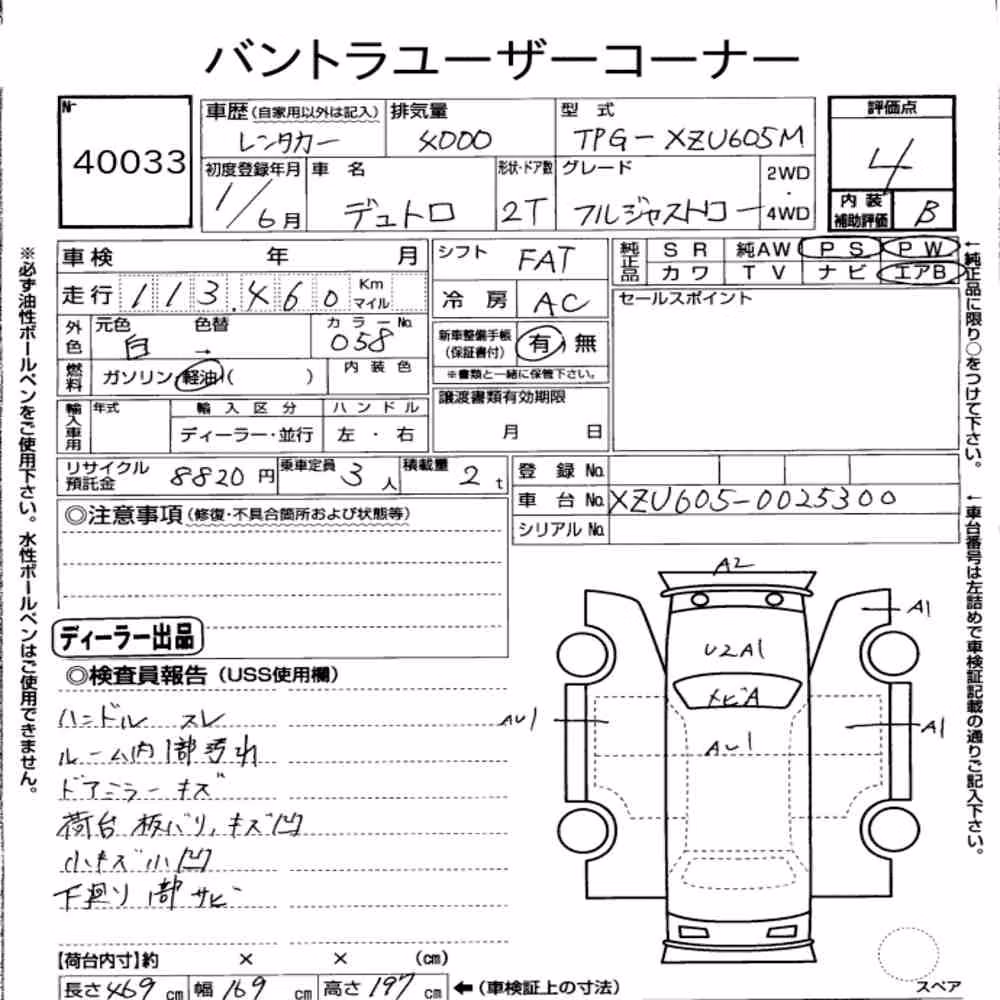 バントラユーザーコーナー
№ 40033
車歴(自家用以外は記入) レンタカー
排気量 4000
型式 TPG-XZU605M
評価点 4
内装補助評価 B
初度登録年月 1/6月
車名 デュトロ
形状・ドア数 2T
グレード フルジャストロー
2WD・4WD
車検 年 月
走行 113,460 Km マイル
シフト FAT
冷房 AC
純正品 SR 純AW PS PW
カワ TV ナビ エアB
外色 元色 白 色替 → カラーNo. 058
燃料 ガソリン・軽油( ) 内装色
新車整備手帳(保証書付) 有・無
※書類と一緒に保管下さい。
セールスポイント
輸入車用 年式 輸入区分 ディーラー・並行 ハンドル 左・右
譲渡書類有効期限 月 日
リサイクル預託金 8820円
乗車定員 3人
積載量 2t
登録No.
車台No. XZU605-0025300
シリアルNo.
◎注意事項(修復・不具合箇所および状態等)
ディーラー出品
◎検査員報告(USS使用欄)
ハンドル スレ
ルーム内1部汚れ
ドアミラーキズ
荷台板バリ、キズ凹
小キズ小凹
下廻り1部サビ
A2
A1
U2A1
トビA
AU1
A1
AU1
【荷台内寸】約 × × (cm)
長さ469cm 幅169cm 高さ197cm ←(車検証上の寸法)
スペア
※必ず油性ボールペンをご使用下さい。水性ボールペンはご使用できません。
←純正品に限り○をつけて下さい。
←車台番号は左詰めで車検証記載の通りご記入下さい。